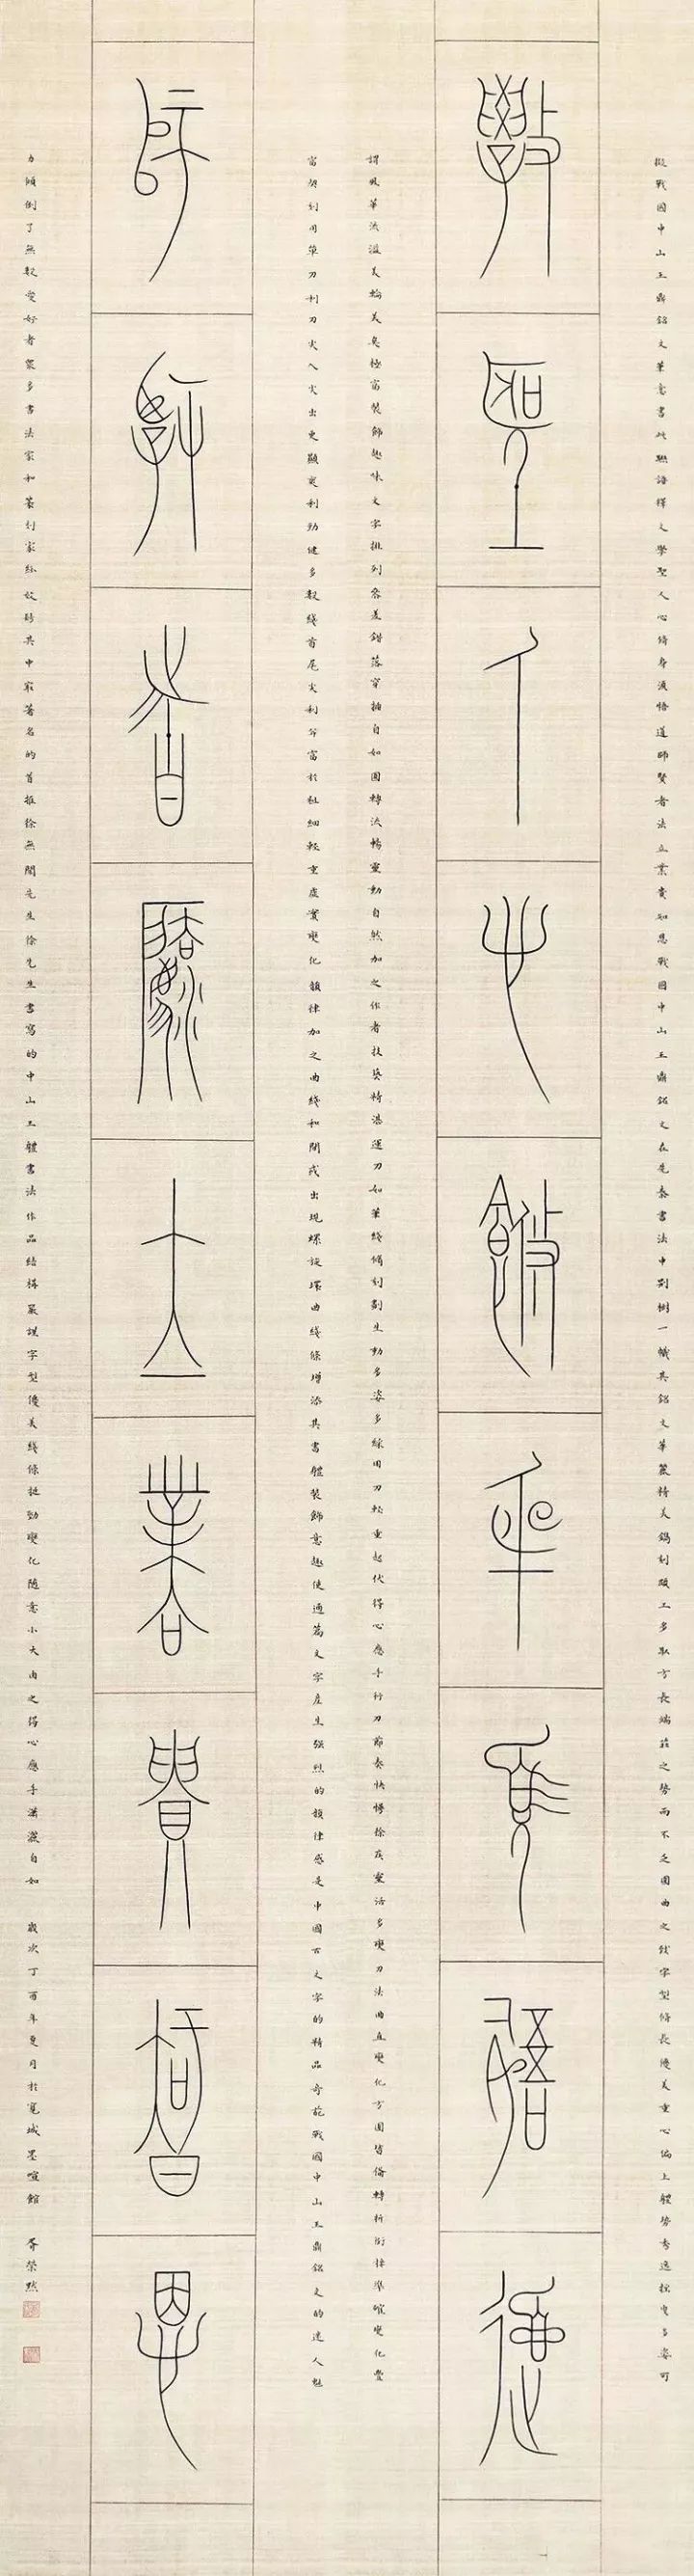 擬戰國中山王鼎銘文筆意書此聯語釋文學聖人心脩身須悟道師賢者法立業貴知恩戰國中山王鼎銘文在先秦書法中别樹一幟其銘文華麗精美鐫刻頗工多取方長端莊之勢而不乏圓曲之致字型脩長優美重心偏上體勢秀逸摇曳多姿可
學聖人心脩身須悟道
謂風華流溢美輪美奐極富裝飾趣味文字排列參差錯落穿插自如圓轉流暢靈動自然加之作者技藝精湛運刀如筆綫條刻劃生動多姿多綵用刀輕重起伏得心應手行刀節奏快慢徐疾靈活多變刀法曲直變化方圓皆備轉折銜接準確變化豐
富契刻用單刀利刃尖入尖出更顯爽利勁健多數綫首尾尖利富於粗細輕重虛實變化韻律加之曲綫和間或出現螺旋環曲綫條增添其書體裝飾意趣使通篇文字産生强烈的韻律感是中國古文字的精品奇葩戰國中山王鼎銘文的迷人魅
師賢者法立業貴知恩
力傾倒了無數愛好者衆多書法家和篆刻家其中最著名的首推徐無聞先生徐先生書寫的中山王體書法作品結構嚴謹字型優美綫條挺勁變化隨意小大由之得心應手瀟灑自如 歲次丁酉年夏月於寬城墨喧館